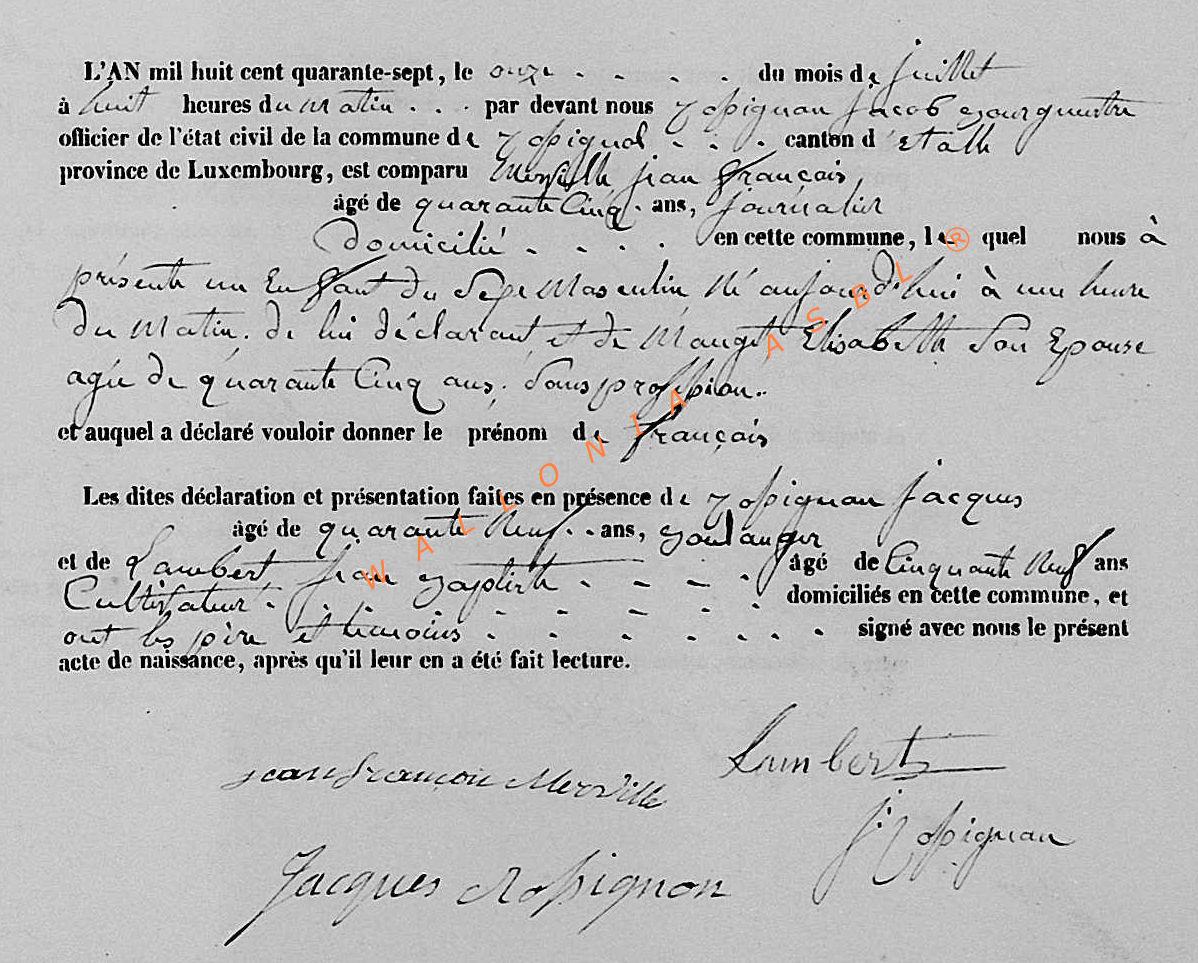 L'AN mil huit cent quarante-sept, le onze . . . . du mois de juillet
à huit heures du matin . . . par devant nous Rossignon Jacob Bourguestre
officier de l'état civil de la commune de Rossignol . . . canton d'Etalle
province de Luxembourg, est comparu Merville jean François
âgé de quarante Cinq . ans, journalier
Domicilié . . . . en cette commune, lequel nous à
présenté un Enfant du Sexe Masculin Né aujourd'hui à une heure
du Matin. de lui déclarant et de Mauget Elisabeth Son Epouse
agée de quarante Cinq ans, Sans profession..
et auquel a déclaré vouloir donner le prénom de françois
Les dites déclaration et présentation faites en présence de Rossignon Jacques
âgé de quarante Neuf . . ans, Boulanger
et de Lambert, jean Baptiste . . . . âgé de Cinquante Neuf ans
Cultivateur . . . . . . . . domiciliés en cette commune, et
ont les père et temoins . . . . . . . signé avec nous le présent
acte de naissance, après qu'il leur en a été fait lecture.
jean françois Merville
Lambert
J. Rossignon
Jacques Rossignon
WALLONIA ASBL ®